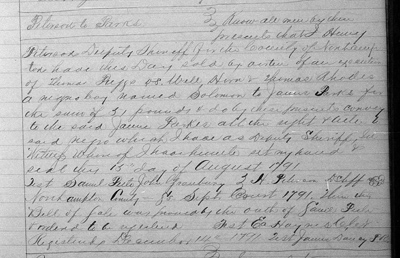 Peterson to Parks } Know all men by these
presents that I Henry
Peterson Deputy Sheriff for the County of Northamp
ton have this Day sold by virtue of an execution
of Thomas vs Will, & Thomas Rhodes
a negro boy named Solomon to James Parks for
the sum of 31 pounds & do by these presents convey
to the said James Parks all the right & title to
said negro which I have as Deputy Sheriff, In
Witness whereof I have hereunto set my hand &
seal this 13 day of August 1791
Test H. Peterson D Shff
Northampton County Sept Court 1791 then this
Bill of Sale was proved by the oath of
& ordered to be registered Test E Haynes Clk
Registered December 14th 1791 Test James